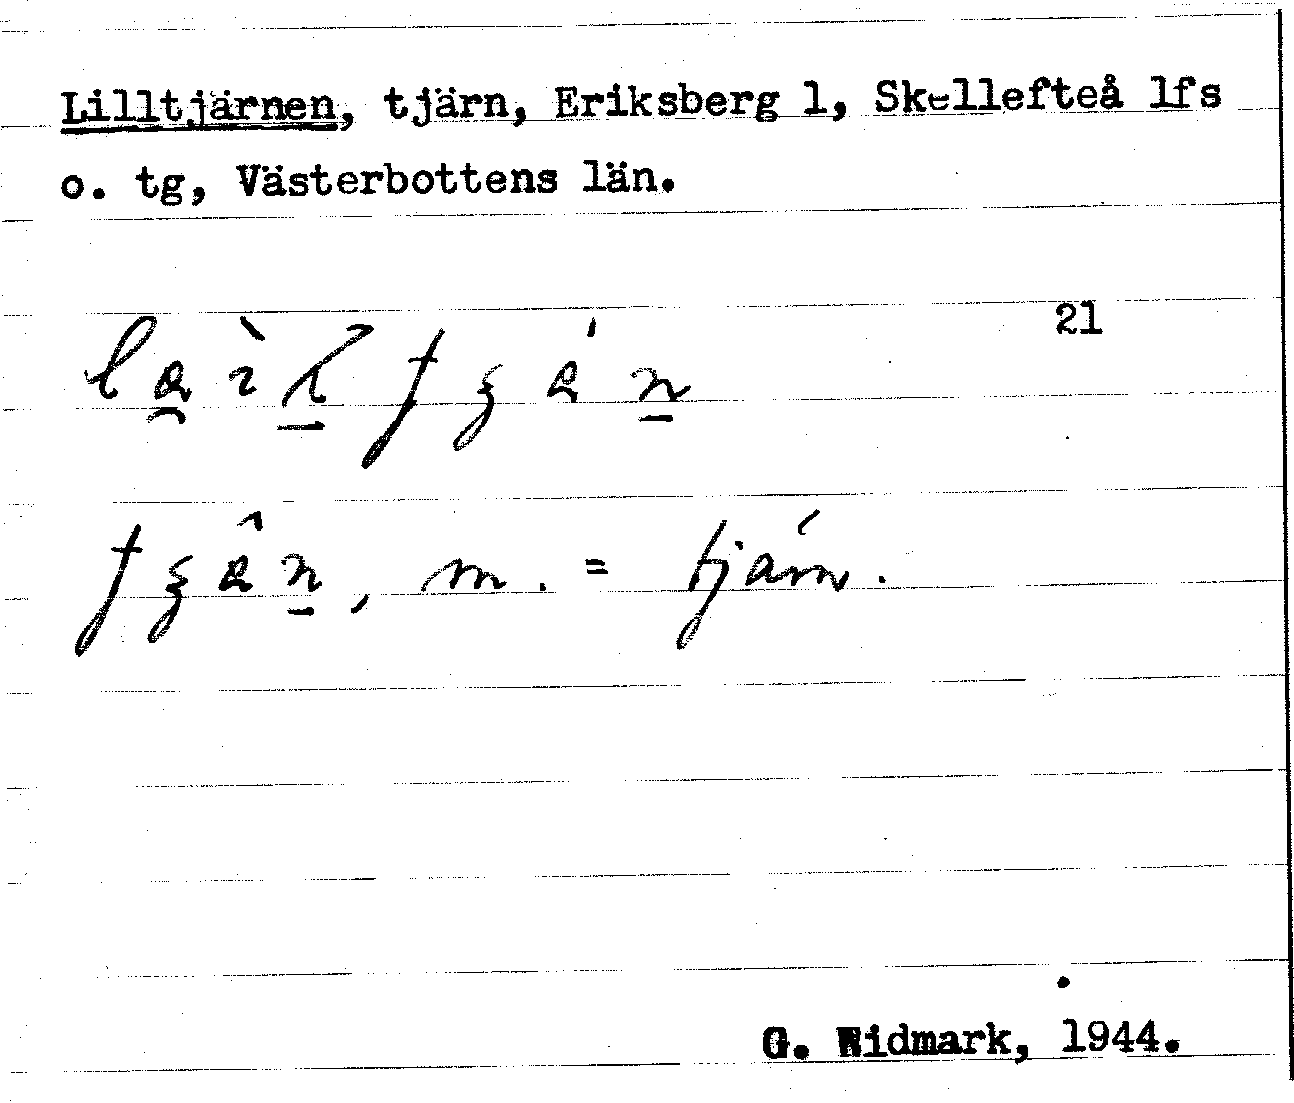 Lilltjärnen, tjärn, Eriksberg 1, Skellefteå lfs
o. tg, Västerbottens län.
21
m. = tjärn.
G. Widmark, 1944.